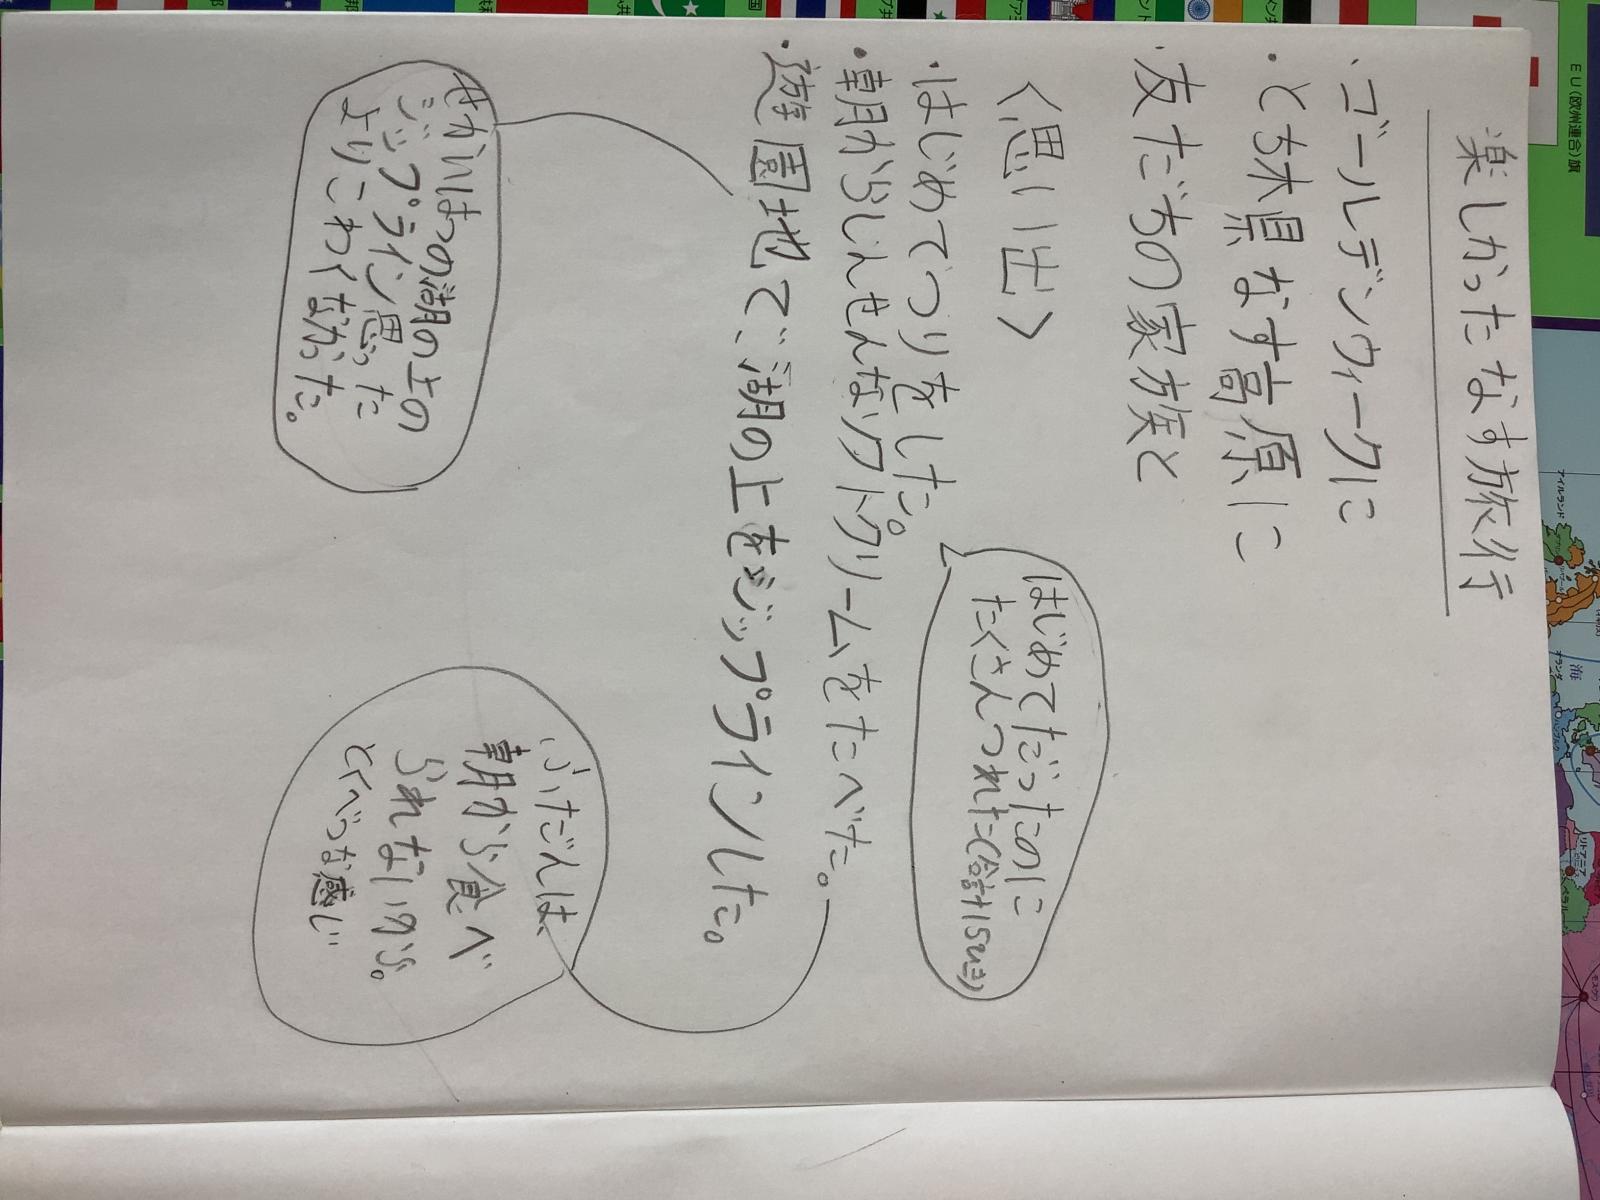 楽しかったなす旅行
・ゴールデンウィークに
・とちぎ県なす高原に
・友だちの家族と
〈思い出〉
・はじめてつりをした。
はじめてだったのに
たくさんつれた(合計15ひき)
・朝からしんせんなソフトクリームをたべた。
ふだんは、
朝から食べ
られないから。
とくべつな感じ
・遊園地で湖の上をジップラインした。
せかいはつの湖の上の
ジップライン思った
よりこわくなかった。
EU(欧州連合)旗
アイルランド